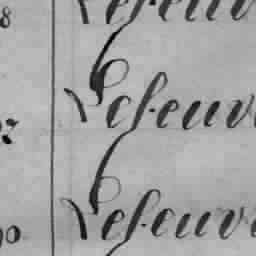 8 Lefeuv
Lefeuv
90 Lefeuve